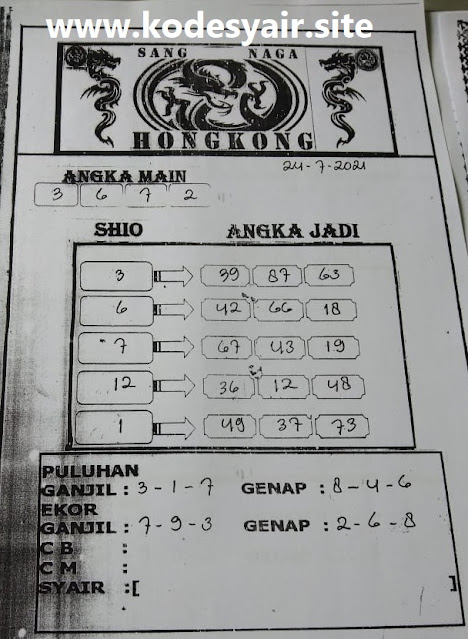 www.kodesyair.site
SANG NAGA
HONGKONG
24-7-2021
ANGKA MAIN
3 6 7 2
SHIO ANGKA JADI
3 39 87 63
6 42 66 18
7 67 43 19
12 36 12 48
1 49 37 73
PULUHAN
GANJIL : 3-1-7 GENAP : 8-4-6
EKOR
GANJIL : 7-9-3 GENAP : 2-6-8
C B :
C M :
SYAIR :[ ]